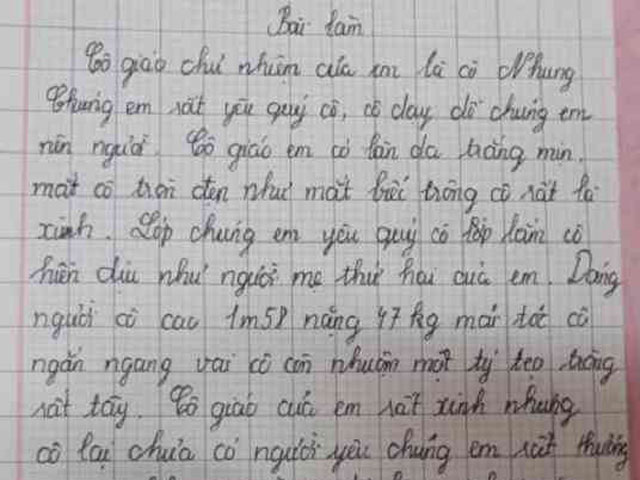 Bài làm
Cô giáo chủ nhiệm của em là cô Nhung
Chúng em rất yêu quý cô, cô dạy dỗ chúng em
nên người. Cô giáo em có làn da trắng mịn.
mắt cô tròn đen như mắt biếc trông cô rất là
xinh. Lớp chúng em yêu quý cô lắm cô
hiền dịu như người mẹ thứ hai của em. Dáng
người cô cao 1m58 nặng 47 kg mái tóc cô
ngắn ngang vai cô còn nhuộm một tý tẹo trông
rất tây. Cô giáo của em rất xinh nhưng
cô lại chưa có người yêu chúng em rất thương